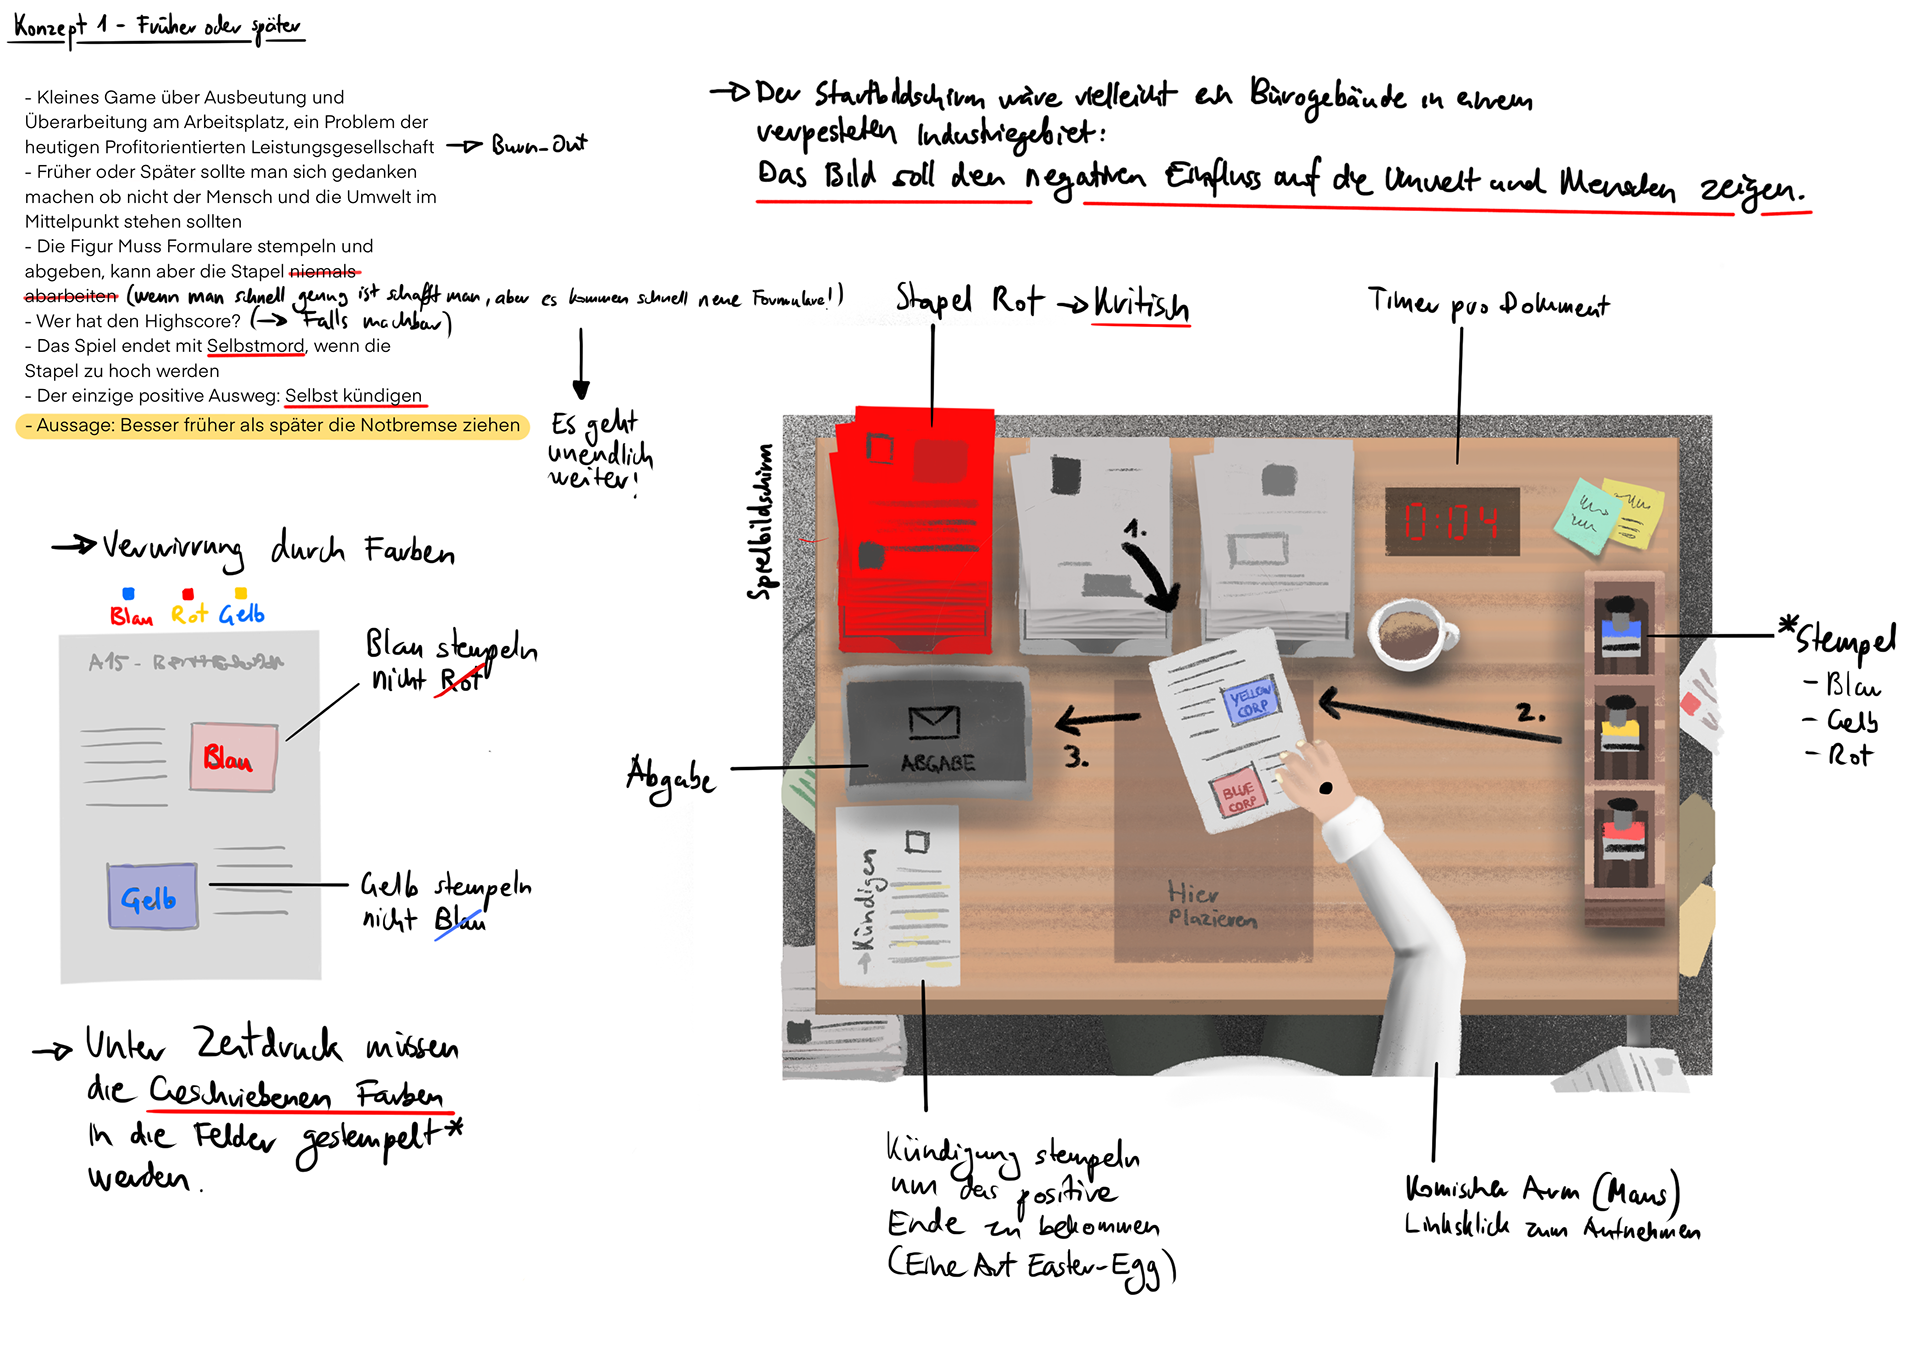 Konzept 1 - Früher oder später
- Kleines Game über Ausbeutung und
Überarbeitung am Arbeitsplatz, ein Problem der
heutigen Profitorientierten Leistungsgesellschaft → Burn-Out
- Früher oder Später sollte man sich gedanken
machen ob nicht der Mensch und die Umwelt im
Mittelpunkt stehen sollten
- Die Figur Muss Formulare stempeln und
abgeben, kann aber die Stapel niemals
abarbeiten (wenn man schnell genug ist schafft man, aber es kommen schnell neue Formulare!)
- Wer hat den Highscore? (→ Falls machbar)
- Das Spiel endet mit Selbstmord, wenn die
Stapel zu hoch werden
- Der einzige positive Ausweg: Selbst kündigen
- Aussage: Besser früher als später die Notbremse ziehen
Es geht
unendlich
weiter!
→ Der Startbildschirm wäre vielleicht ein Bürogebäude in einem
verpesteten Industriegebiet:
Das Bild soll den negativen Einfluss auf die Umwelt und Menschen zeigen.
→ Verwirrung durch Farben
Blau Rot Gelb
A15 -
Blau
Blau stempeln
nicht Rot
Gelb
Gelb stempeln
nicht Blau
→ Unter Zeitdruck müssen
die Geschriebenen Farben
in die Felder gestempelt*
werden.
Stapel Rot → Kritisch
Timer pro Dokument
Spielbildschirm
0:04
1.
2.
3.
YELLOW
CORP
BLUE
CORP
ABGABE
Abgabe
→ Kündigen
Hier
Plazieren
*Stempel
- Blau
- Gelb
- Rot
Kündigung stempeln
um das positive
Ende zu bekommen
(Eine Art Easter-Egg)
Komischer Arm (Maus)
Linksklick zum Aufnehmen